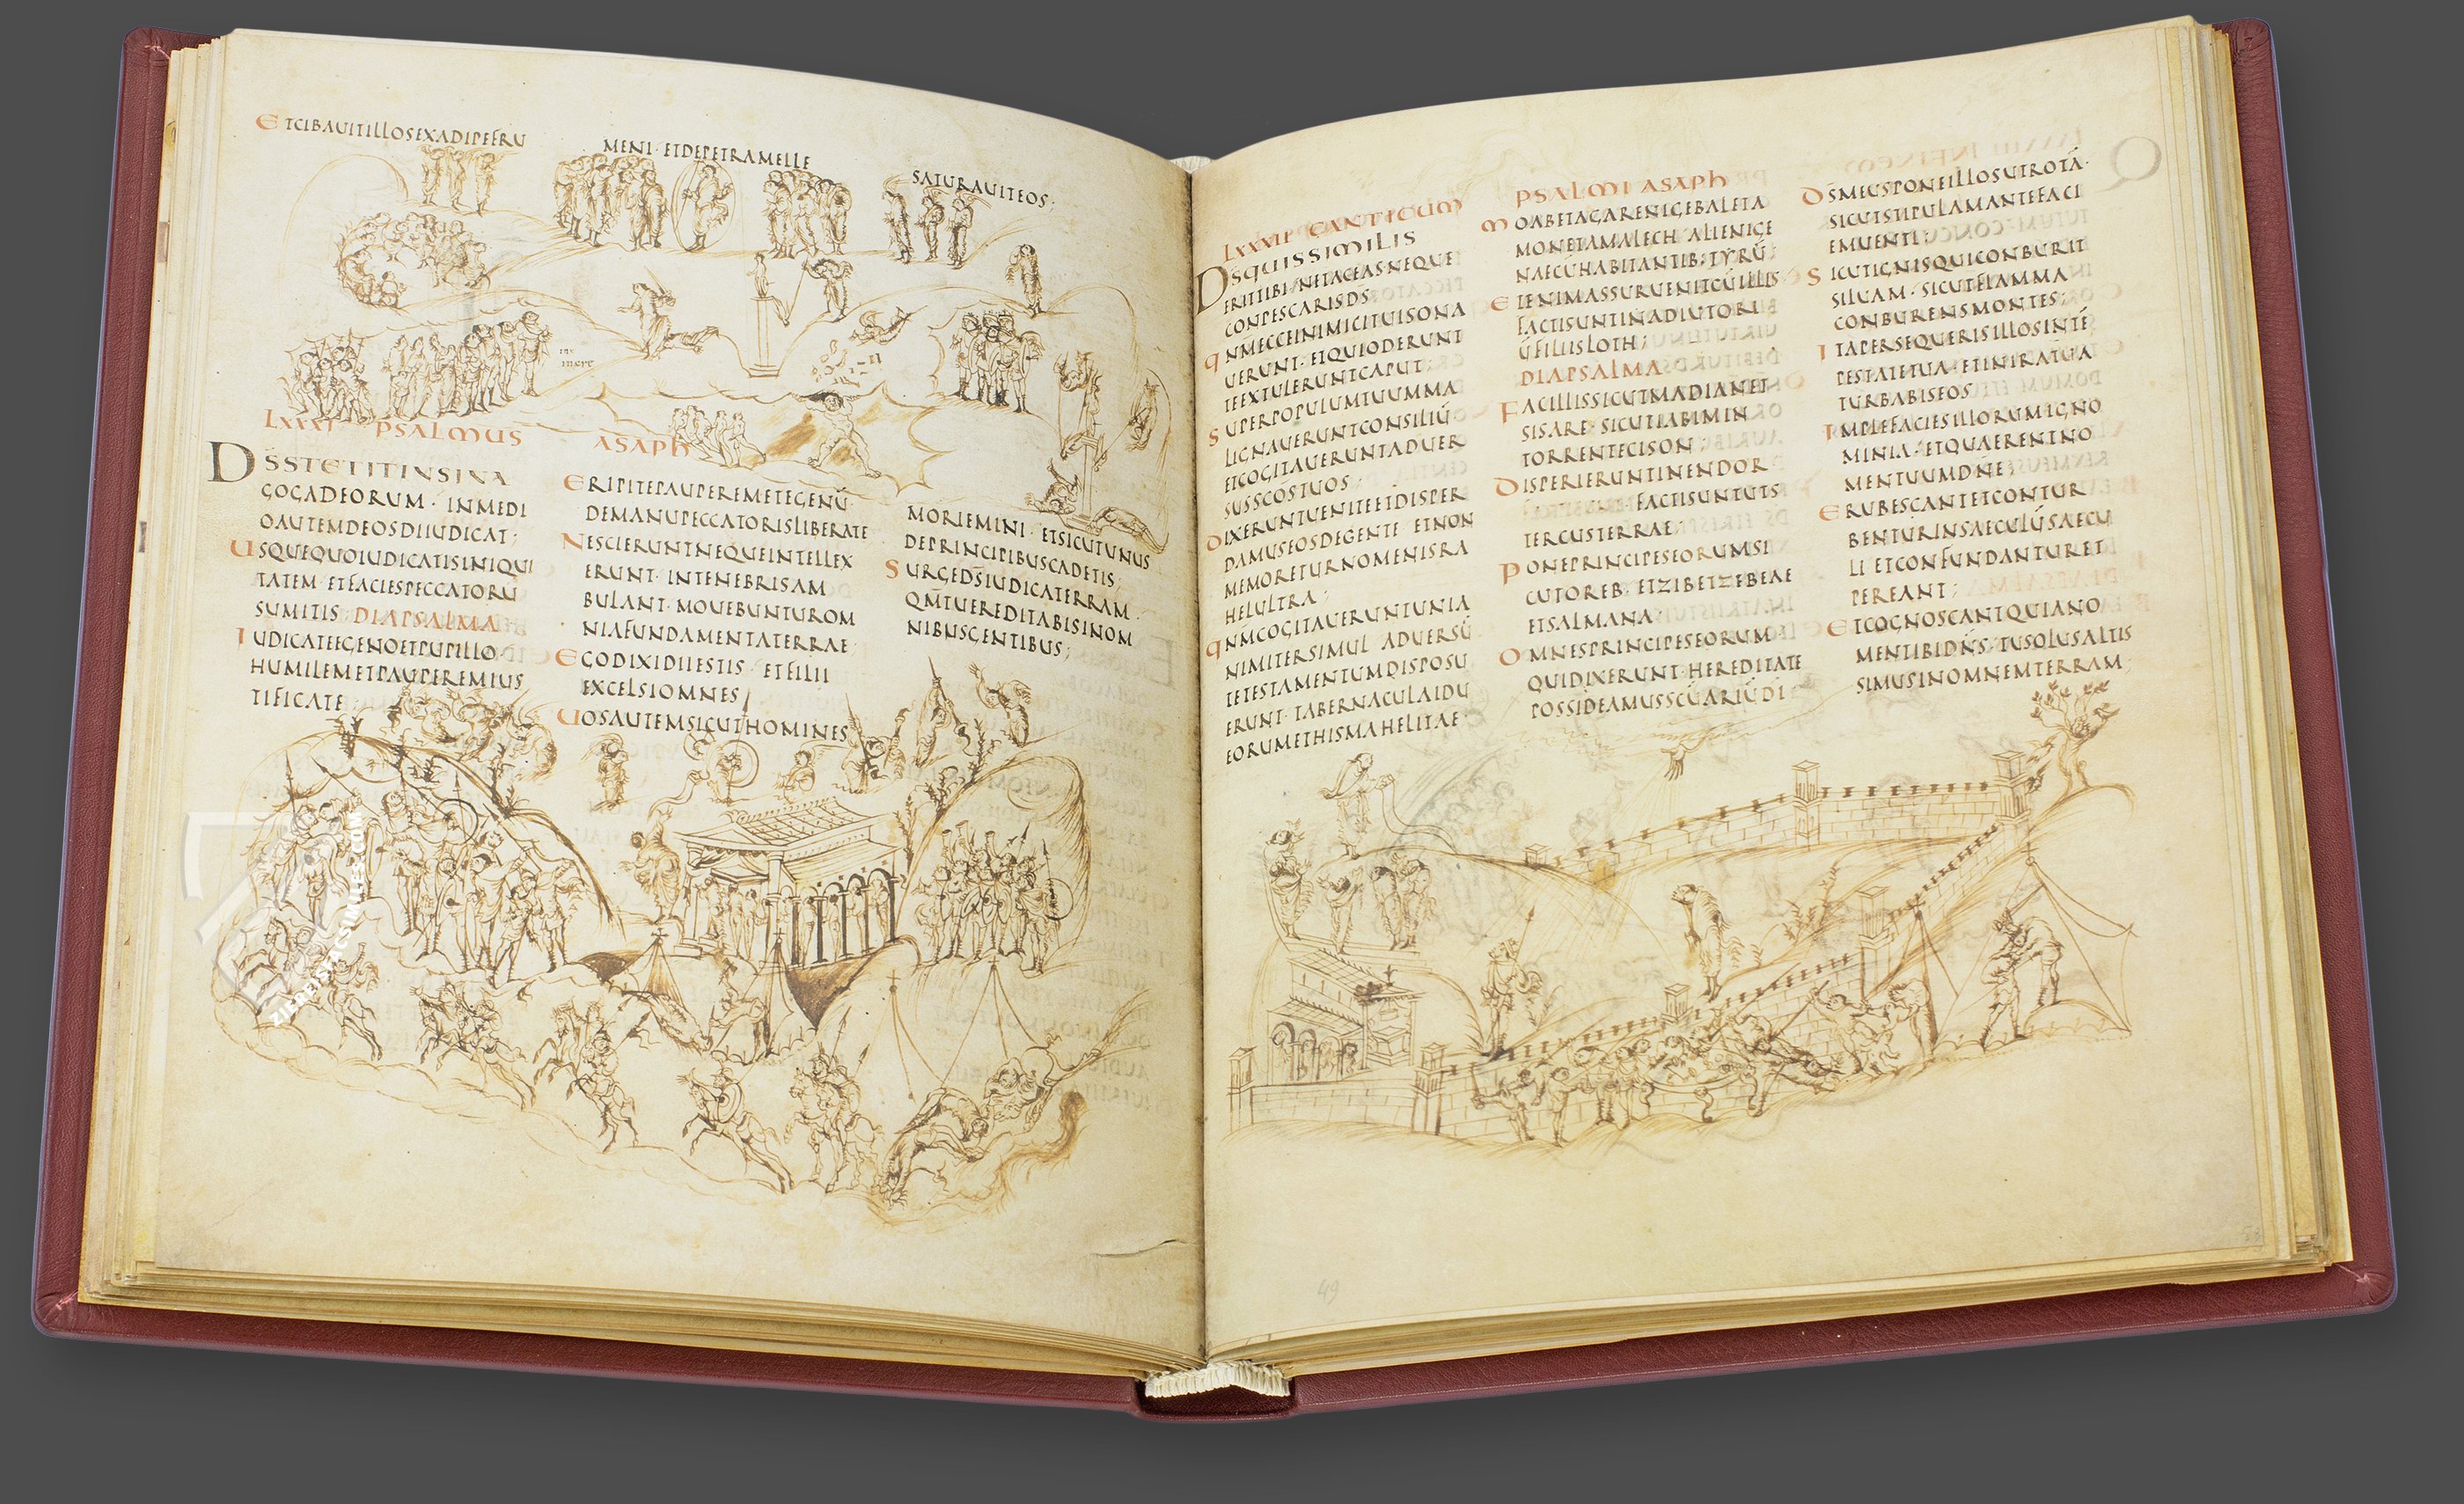 ETCIBAUITILLOSEXADIPEFRU
MENI · ETDEPETRAMELLE
SATURAUITEOS ·
LXXXI PSALMUS ASAPH
DSSTETITINSINA
GOGADEORUM · INMEDI
OAUTEMDEOSDIIUDICAT ;
USQUEQUOIUDICATISINIQUI
TATEM · ETFACIESPECCATORU
SUMITIS DIAPSALMA
IUDICATEEGENOETPUPILLO ·
HUMILEMETPAUPEREMIUS
TIFICATE
ERIPITEPAUPEREMETEGENŪ
DEMANUPECCATORISLIBERATE
NESCIERUNTNEQUEINTELLEX
ERUNT · INTENEBRISAM
BULANT · MOUEBUNTUROM
NIAFUNDAMENTATERRAE
EGODIXIDIIESTIS · ETFILII
EXCELSIOMNES
UOSAUTEMSICUTHOMINES
MORIEMINI · ETSICUTUNUS
DEPRINCIPIBUSCADETIS ;
SURGED̄SIUDICATERRAM ·
QM̄TUEREDITABISINOM
NIBUSGENTIBUS ;
ZIEREIS FACSIMILES.COM
LXXXII CANTICUM PSALMI ASAPH
DSQUISSIMILIS
ERITTIBI NETACEASNEQUE
CONPESCARISDS
QNMECCEINIMICITUISONA
UERUNT · ETQUIODERUNT
TEEXTULERUNTCAPUT
SUPERPOPULUMTUUMMA
LIGNAUERUNTCONSILIŪ
ETCOGITAUERUNTADUER
SUSSCOSTUOS
DIXERUNTUENITEETDISPER
DAMUSEOSDEGENTE ETNON
MEMORETURNOMENISRA
HELULTRA ;
QNMCOGITAUERUNTUNIA
NIMITERSIMUL ADUERSŪ
TETESTAMENTUMDISPOSU
ERUNT · TABERNACULAIDU
EORUMETHISMAHELITAE
MOABETAGARENIGEBALETA
MONETAMALECH ALIENIGE
NAECŪHABITANTIB; TYRŪ
ETENIMASSURUENITCŪILLIS
FACTISUNTINADIUTORI
ŪFILIISLOTH ;
DIAPSALMA
FACILLISSICUTMADIANET
SISARE · SICUTIABIMIN
TORRENTECISON ;
DISPERIERUNTINENDOR
FACTISUNTUTS
TERCUSTERRAE
PONEPRINCIPESEORUMSI
CUTOREB · ETZIBETZEBEAE
ETSALMANA
OMNESPRINCIPESEORUM
QUIDIXERUNT · HEREDITATE
POSSIDEAMUSSCŪARIŪDĪ
DSMEUSPONEILLOSUTROTĀ ·
SICUTSTIPULAMANTEFACI
EMUENTI ;
SICUTIGNISQUICONBURIT
SILUAM · SICUTFLAMMA
CONBURENSMONTES ;
ITAPERSEQUERISILLOSINTĒ
PESTATETUA · ETINIRATUA
TURBABISEOS
IMPLEFACIESILLORUMIGNO
MINIA · ETQUAERENTNO
MENTUUMDNE ;
ERUBESCANTETCONTUR
BENTURINSAECULŪSAECU
LI ETCONFUNDANTURET
PEREANT ;
ETCOGNOSCANTQUIANO
MENTIBIDNS · TUSOLUSALTIS
SIMUSINOMNEMTERRAM ;
49
53